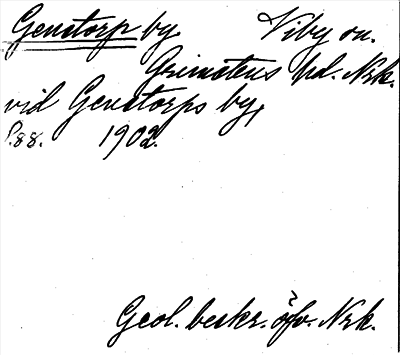 Genstorp by. Viby sn.
Grimstens hd. Nrk.
vid Genstorps by,
S.88. 1902.
Geol. beskr. öfv. Nrk.